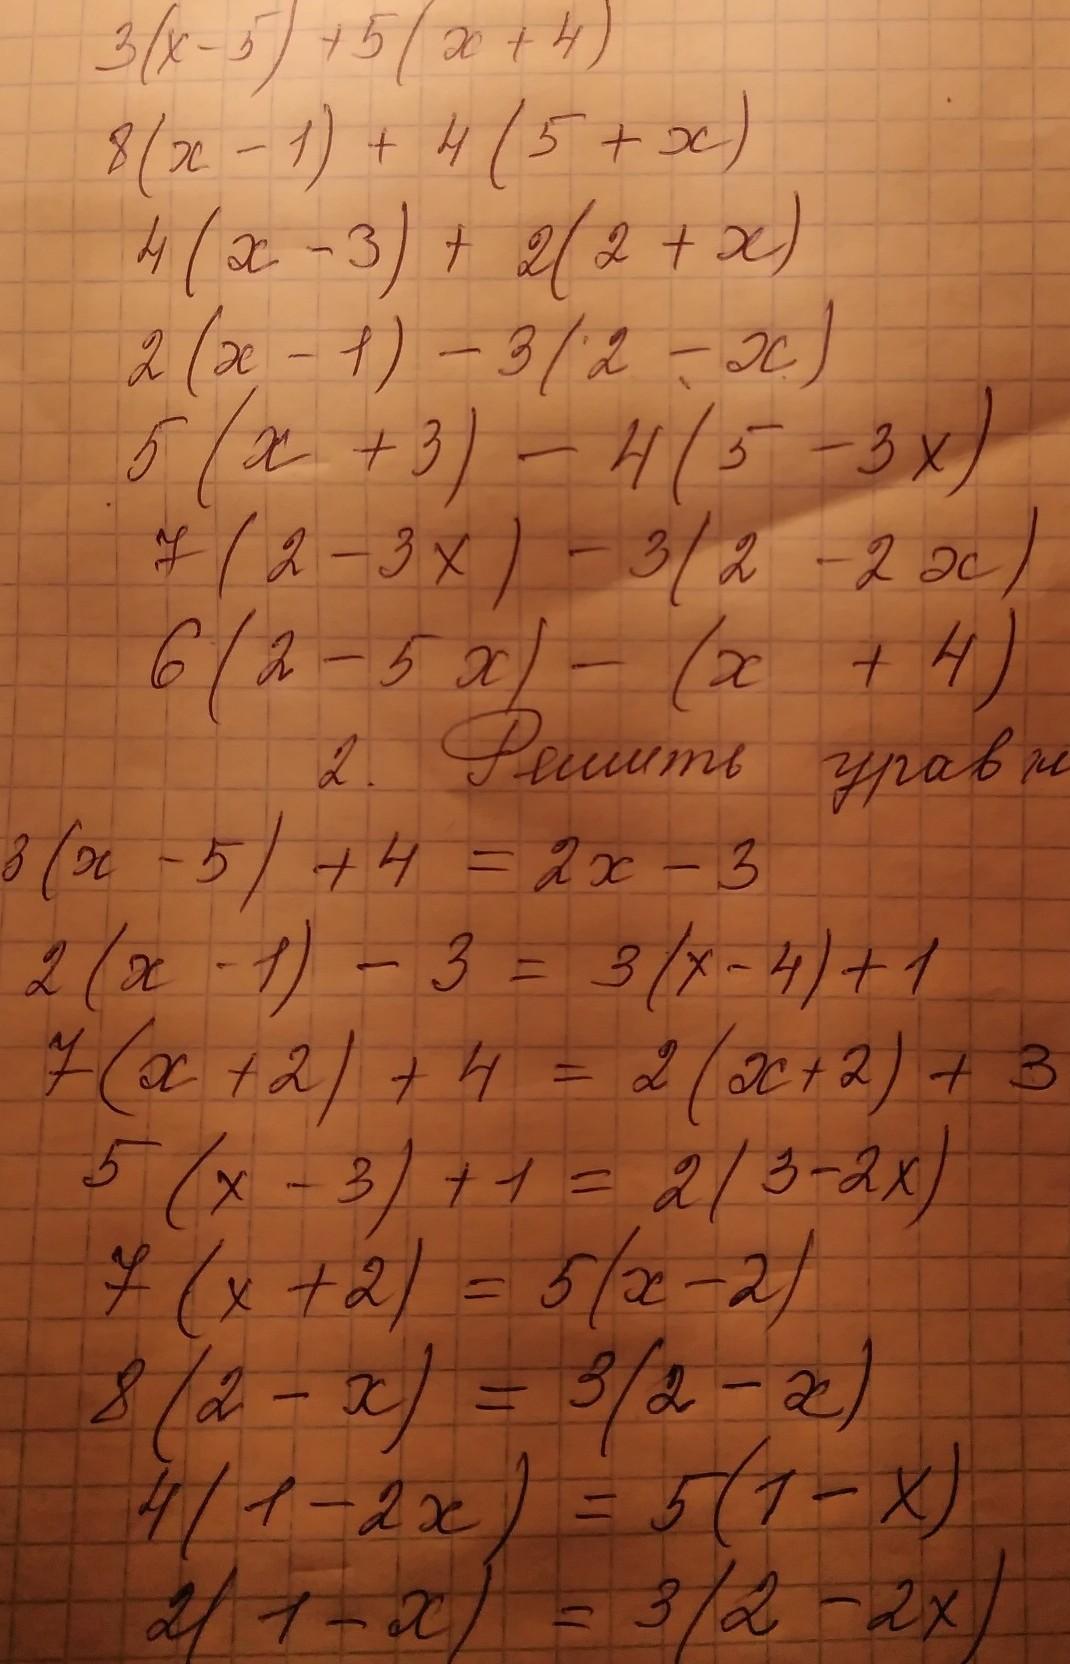 3(x-5)+5(x+4)
8(x-1)+4(5+x)
4(x-3)+2(2+x)
2(x-1)-3(2-x)
5(x+3)-4(5-3x)
7(2-3x)-3(2-2x)
6(2-5x)-(x+4)
2. Решить уравн
3(x-5)+4=2x-3
2(x-1)-3=3(x-4)+1
7(x+2)+4=2(x+2)+3
5(x-3)+1=2(3-2x)
7(x+2)=5(x-2)
8(2-x)=3(2-x)
4(1-2x)=5(1-x)
2(1-x)=3(2-2x)